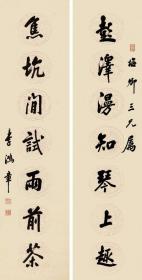 彭澤漫知琴上趣
梅卿三兄屬
焦坑閒試雨前茶
李鴻章